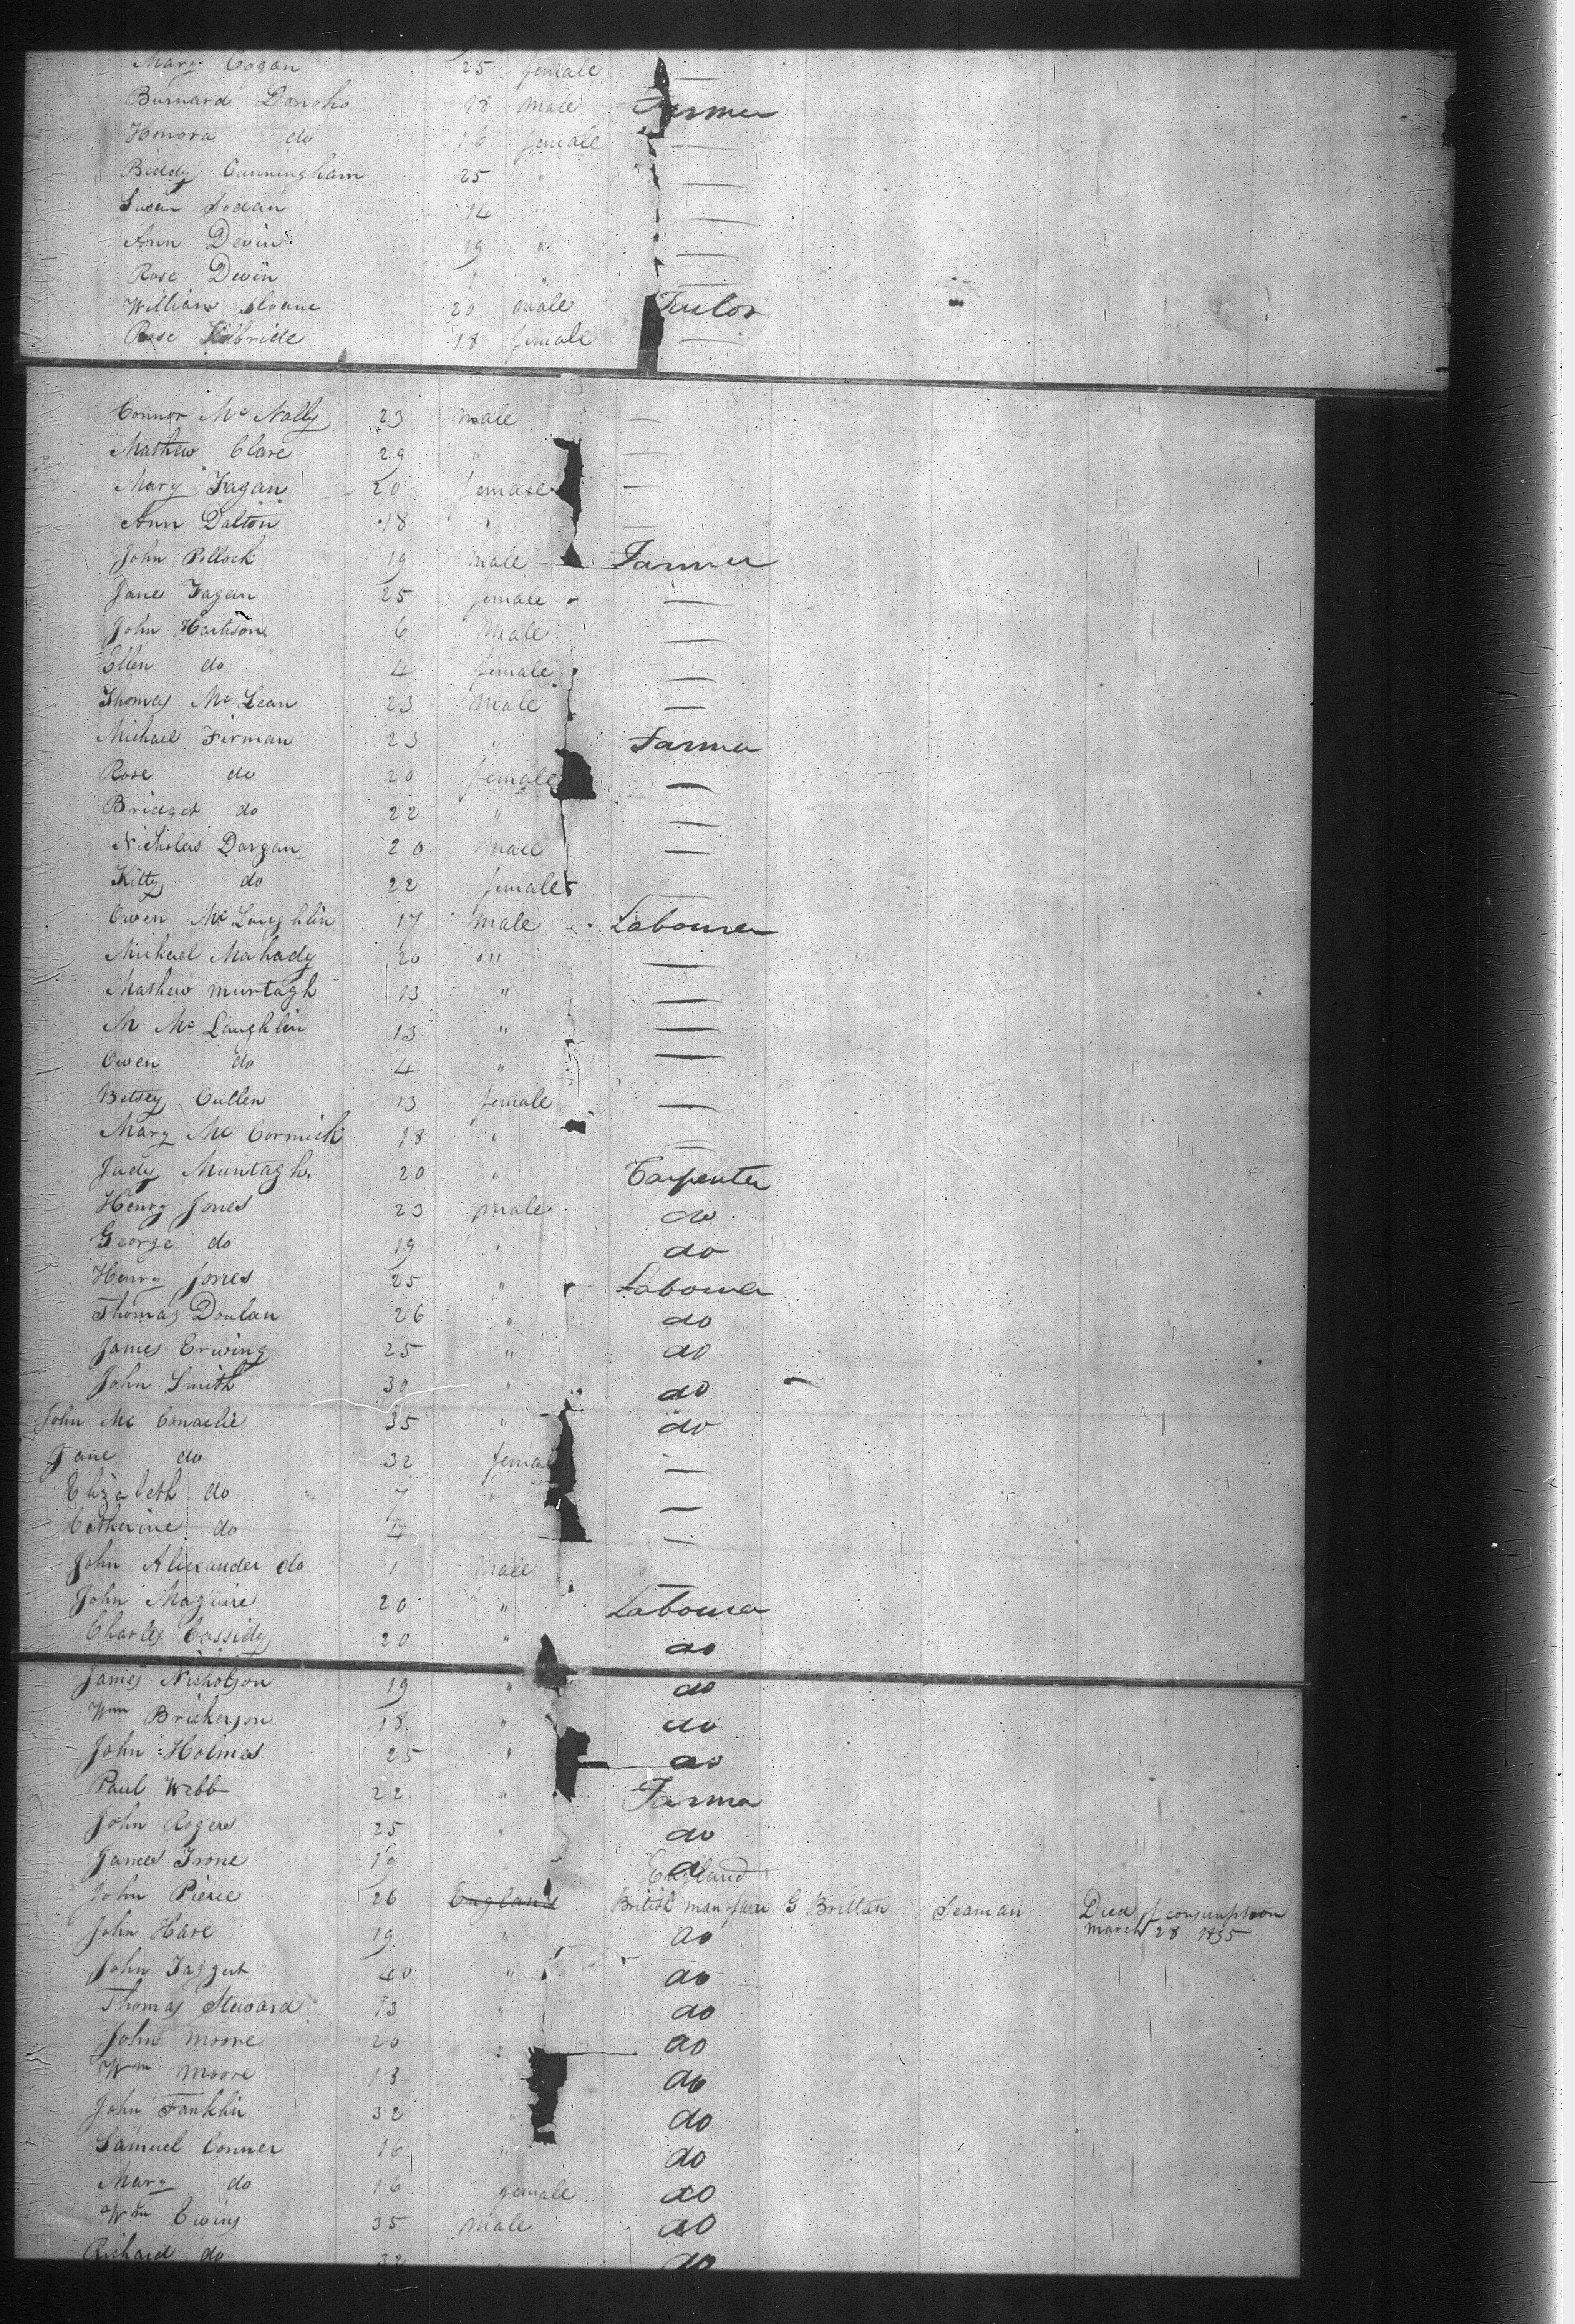 Mary Cogan 25 female —
Burnard Donoho 18 male Farmer
Honora do 16 female —
Biddy Cunningham 25 " —
Susan 14 " —
Ann Devin 19 " —
Rose Devin 1 " —
William Sloane 20 male Tailor
Rose Kilbride 18 female —
Connor Mc Nally 23 male —
Mathew Clare 29 " —
Mary Fagan 20 female —
Ann Dalton 18 " —
John Pollock 19 male Farmer
Jane Fagan 25 female —
John Harlison 6 Male —
Ellen do 4 female —
Thomas Mc Lean 23 Male —
Michael Firman 23 " Farmer
Rose do 20 female —
Bridget do 22 " —
Nicholas Dargan 20 Male —
Kitty do 22 female —
Owen Mc Laughlin 17 Male Labourer
Michael Mahady 20 " —
Mathew murtagh 13 " —
M Mc Laughlin 13 " —
Owen do 4 " —
Betsey Cullen 13 female —
Mary Mc Cormick 18 " —
Judy Murtagh. 20 " Carpenter
Henry Jones 23 male do
George do 19 " do
Henry Jones 25 " Labourer
Thomas Doulan 26 " do
James Erwing 25 " do
John Smith 30 " do
John Mc Conachie 35 " do
Jane do 32 female —
Elizabeth do 7 " —
Catherine do 4 —
John Alexander do 1 Male —
John Maguire 20 " Labourer
Charles Cassidy 20 " do
James Nicholson 19 " do
Wm Brickerson 18 " do
John Holmes 25 " do
Paul Webb 22 " Farmer
John Rogers 25 " do
James Irone 19 do
England
John Pierce 26 England British man of war G Brittan Seaman Died of consumption
March 28 1835
John Hare 19 " do
John Taggert 40 " do
Thomas Steward 13 " do
John moore 20 " do
Wm moore 18 do
John Fanklin 32 do
Samuel Conner 16 " do
Mary do 16 female do
Wm Ewing 35 Male do
Richard do 32 " do